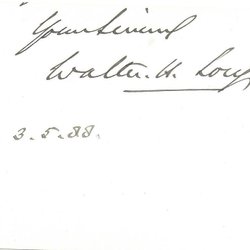 Yours sincerely
Walter. H. Long
3.5.88.